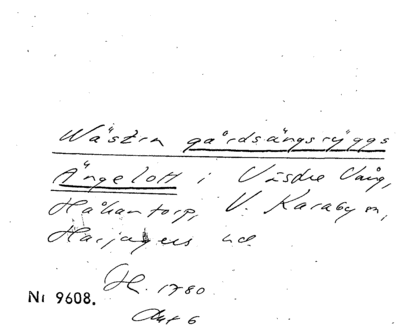 Wästra gårdsängsryggs
Ängelott i Västre Vång,
Håkantorp, V. Karaby sn,
Harjagers hd.
H. 1780
Akt 6
Nr 9608.